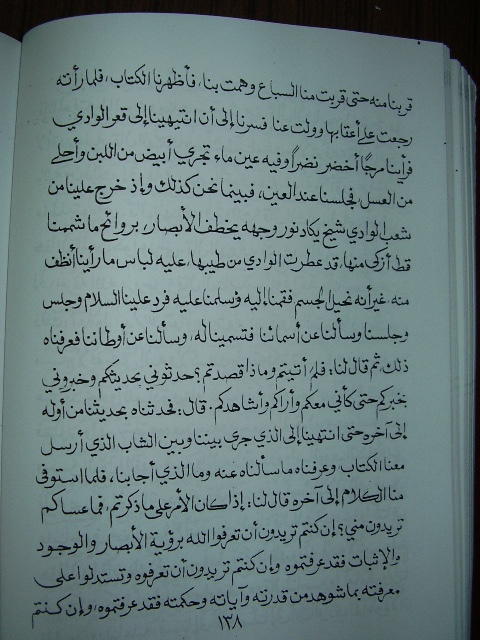 قربنا منه حتى قربت منا السباع وهمت بنا، فأظهرنا الكتاب، فلما رأته
رجعت على أعقابها وولت عنا فسرنا إلى أن انتهينا إلى قعر الوادي
فرأينا مرجًا أخضر نضرًا وفيه عين ماء تجري أبيض من اللبن وأحلى
من العسل، فجلسنا عند العين، فبينما نحن كذلك وإذ خرج علينا من
شعب الوادي شيخ يكاد نور وجهه يخطف الأبصار، بروائح ما شممنا
قط أزكى منها، قد عطرت الوادي من طيبها، عليه لباس ما رأينا أنظف
منه، غير أنه نحيل الجسم فقمنا إليه وسلمنا عليه فرد علينا السلام وجلس
وجلسنا وسألنا عن أسمائنا فتسمينا له، وسألنا عن أوطاننا فعرفناه
ذلك ثم قال لنا: فلم أتيتم وماذا قصدتم؟ حدثوني بحديثكم وخبروني
بخبركم حتى كأني معكم وأراكم وأشاهدكم، قال: فحدثناه بحديثنا من أوله
إلى آخره حتى انتهينا إلى الذي جرى بيننا وبين الشاب الذي أرسل
معنا الكتاب وعرفناه ما سألناه عنه وما الذي أجابنا، فلما استوفى
منا الكلام إلى آخره قال لنا: إذا كان الأمر على ما ذكرتم، فما عساكم
تريدون مني؟ إن كنتم تريدون أن تعرفوا الله برؤية الأبصار والوجود
والإثبات فقد عرفتموه وإن كنتم تريدون أن تعرفوه وتستدلوا على
معرفته بما شوهد من قدرته وآياته وحكمته فقد عرفتموه، وإن كنتم
١٣٨